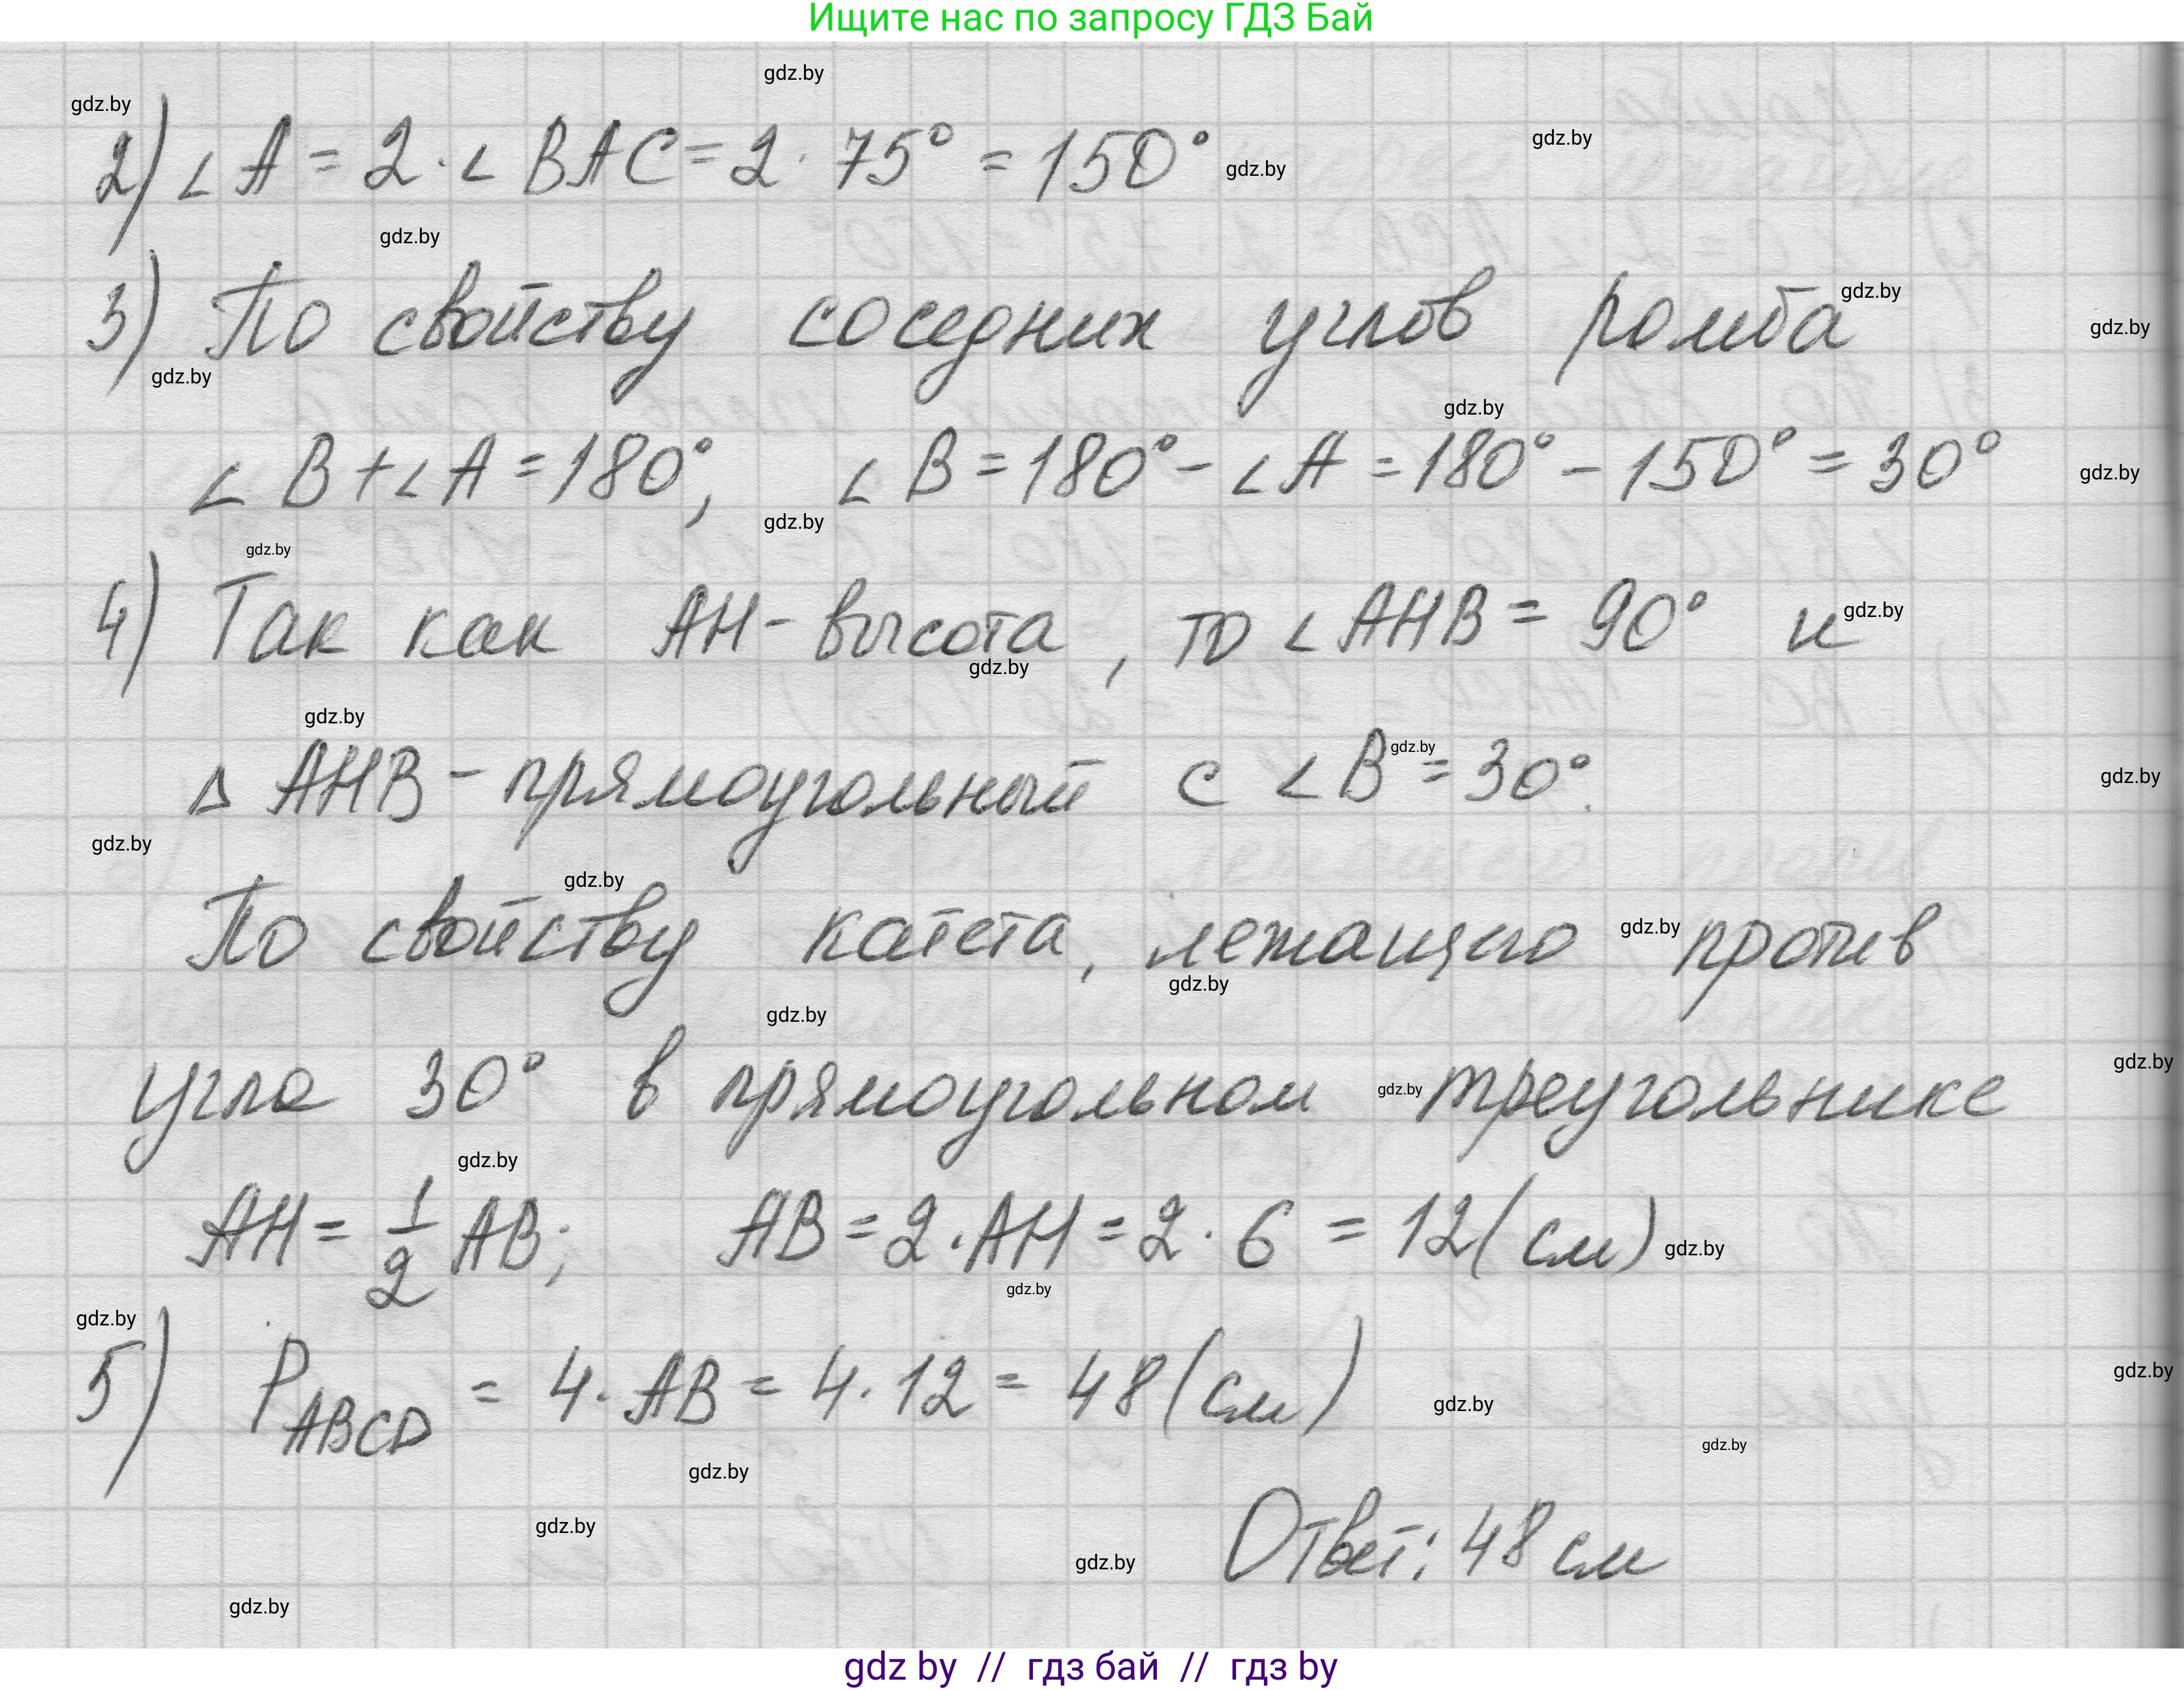 Ищите нас по запросу ГДЗ Бай
gdz.by
gdz.by
gdz.by
2) ∠A = 2·∠BAC = 2·75° = 150°
gdz.by
gdz.by
3) По свойству соседних углов ромба
gdz.by
gdz.by
gdz.by
gdz.by
∠B+∠A=180°; ∠B=180°-∠A=180°-150°=30°
gdz.by
gdz.by
gdz.by
4) Так как AH-высота, то ∠AHB = 90° и
gdz.by
gdz.by
gdz.by
gdz.by
Δ AHB - прямоугольный с ∠B = 30°.
gdz.by
gdz.by
gdz.by
По свойству катета, лежащего против
gdz.by
gdz.by
gdz.by
gdz.by
угла 30° в прямоугольном треугольнике
gdz.by
gdz.by
AH = 1/2 AB; AB = 2·AH = 2·6 = 12(см)
gdz.by
gdz.by
gdz.by
5) P ABCD = 4·AB = 4·12 = 48(см)
gdz.by
gdz.by
gdz.by
gdz.by
gdz.by
Ответ: 48 см
gdz.by
gdz.by
gdz by // гдз бай // гдз by